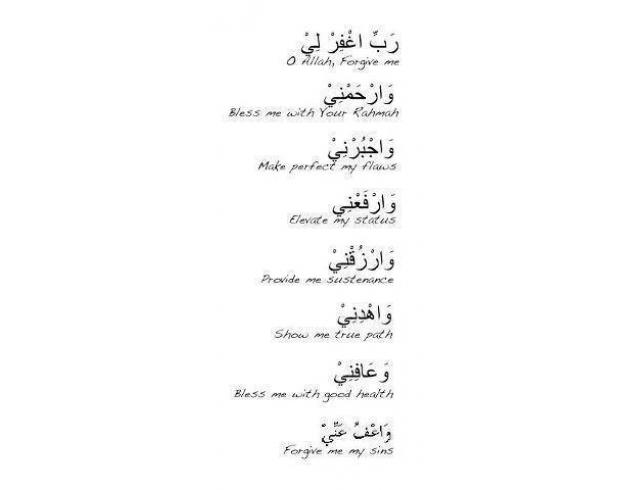 رَبِّ اغْفِرْ لِيْ
O Allah, Forgive me
وَارْحَمْنِيْ
Bless me with Your Rahmah
وَاجْبُرْنِيْ
Make perfect my flaws
وَارْفَعْنِي
Elevate my status
وَارْزُقْنِيْ
Provide me sustenance
وَاهْدِنِيْ
Show me true path
وَعَافِنِيْ
Bless me with good health
وَاعْفُ عَنِّيْ
Forgive me my sins